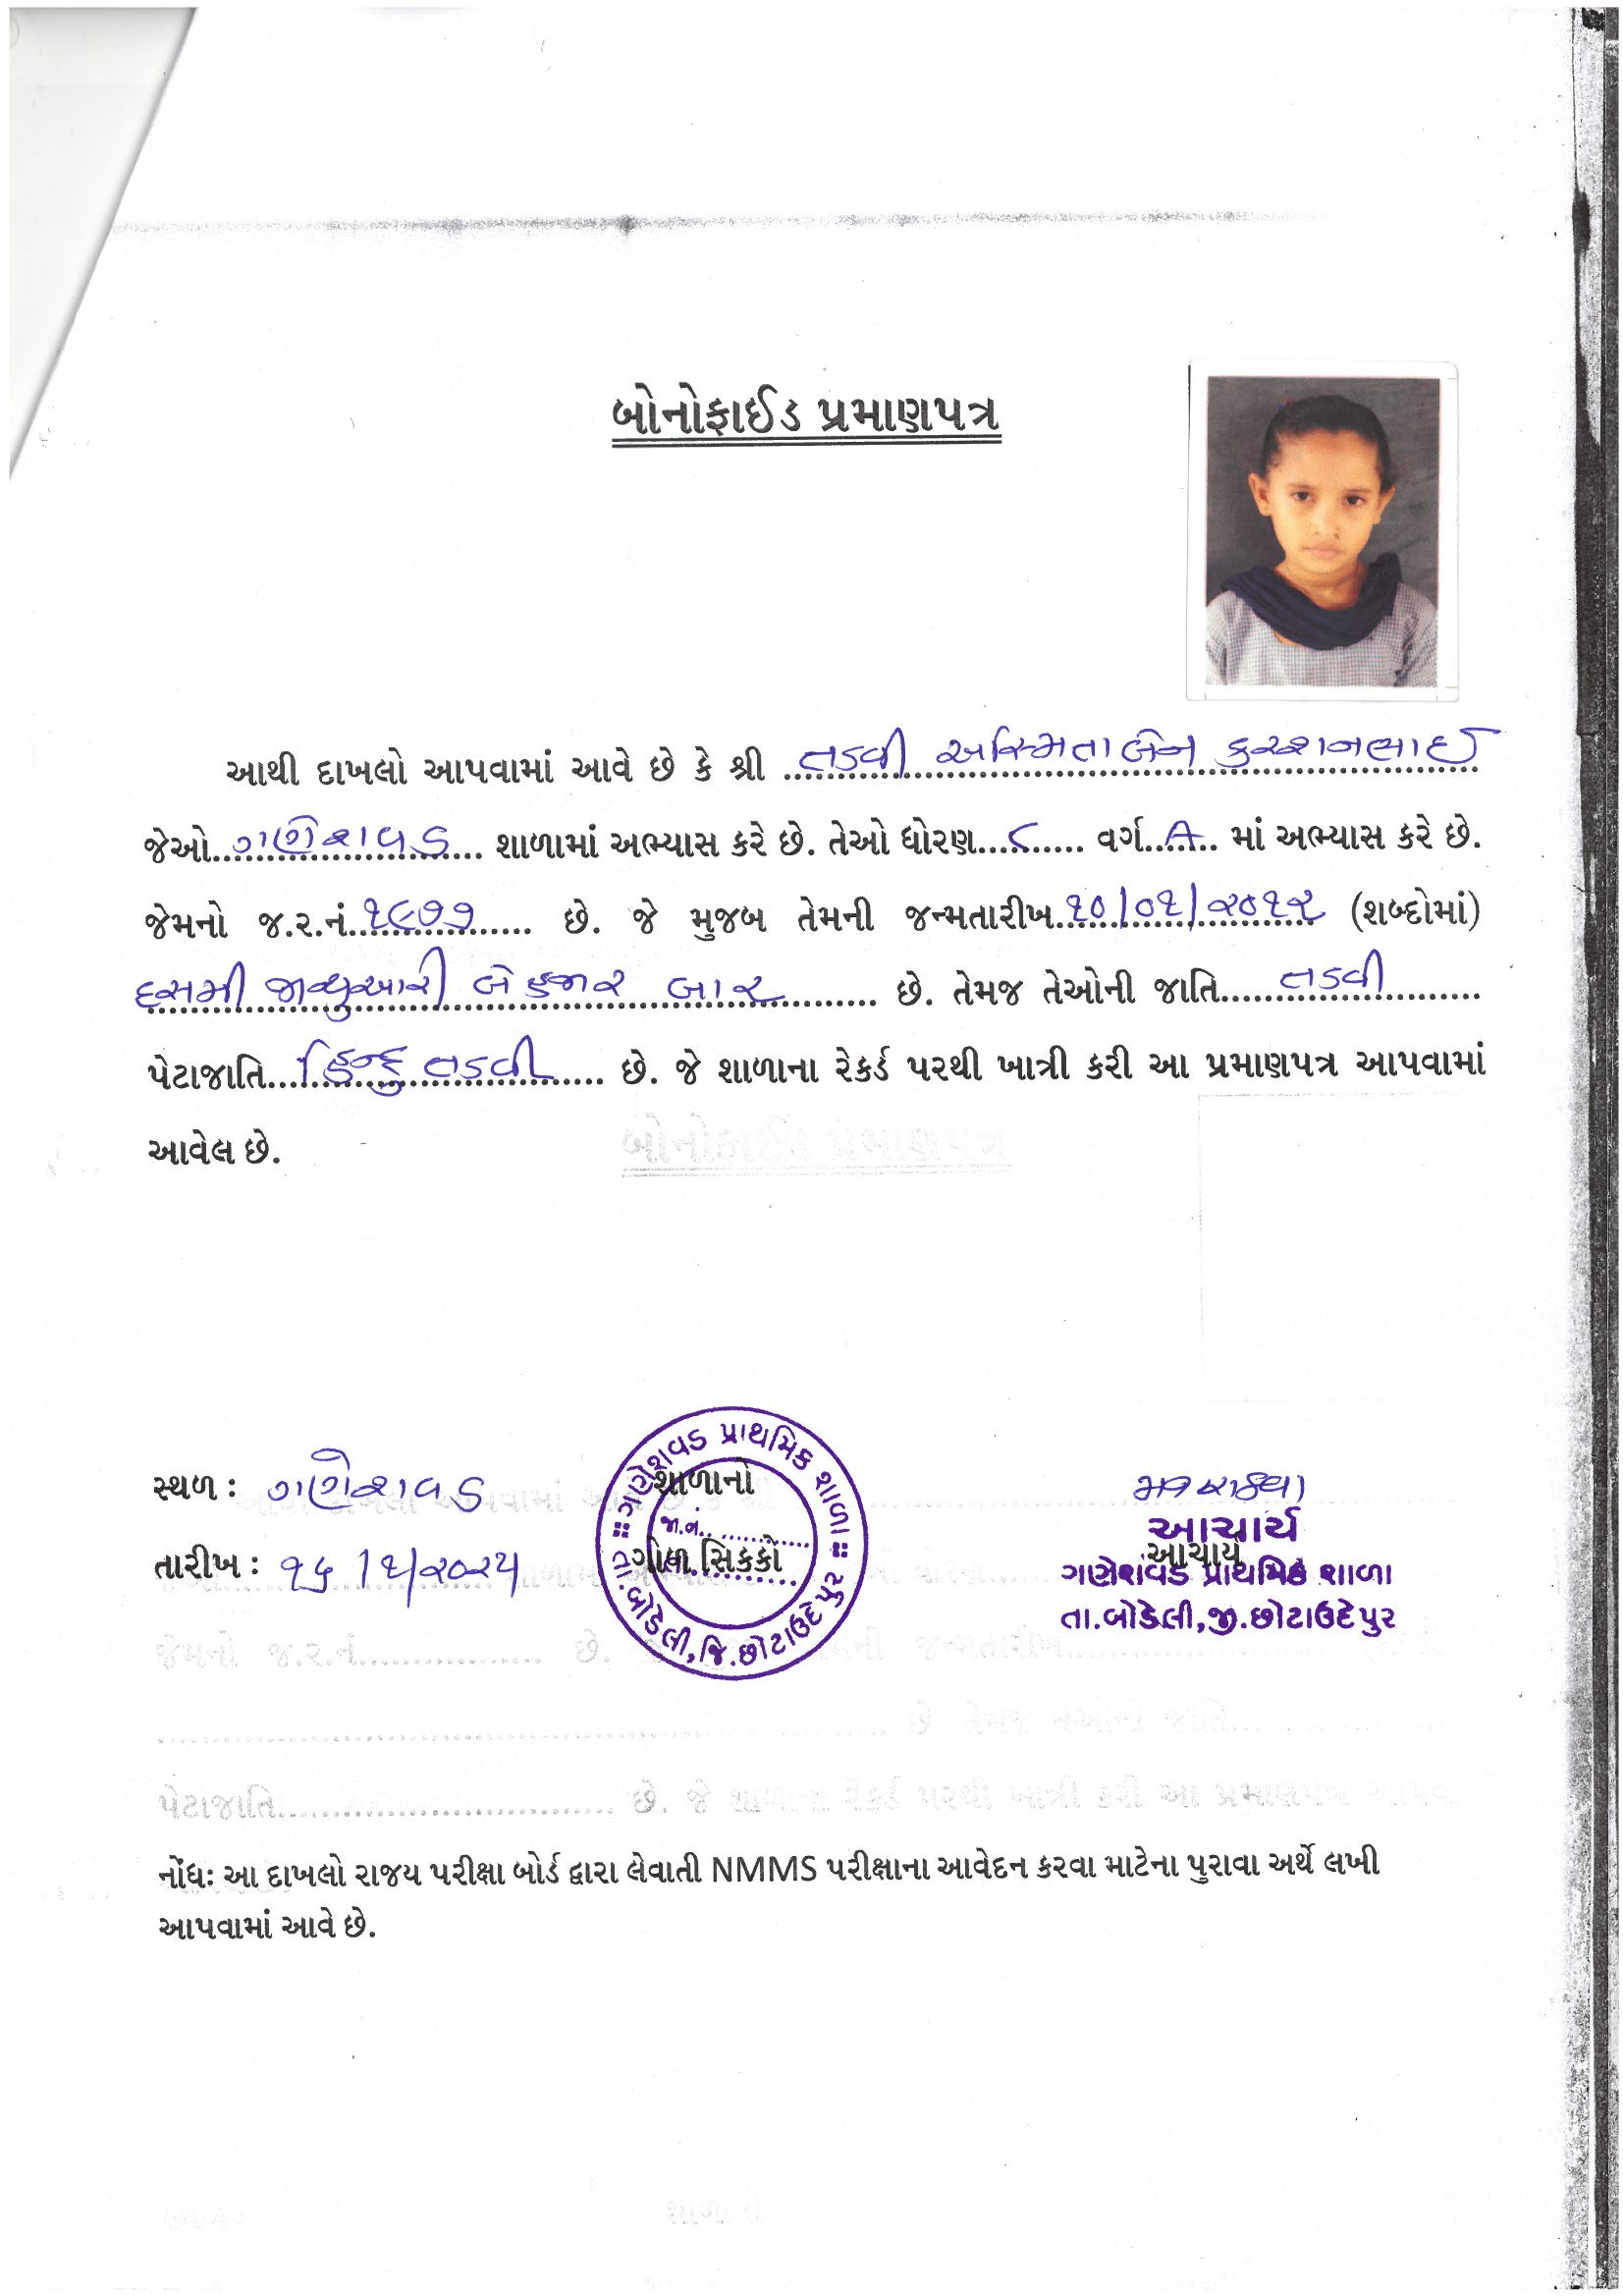 બોનોફાઈડ પ્રમાણપત્ર
આથી દાખલો આપવામાં આવે છે કે શ્રી તડવી અસ્મિતાબેન કરશનભાઈ
જેઓ ગણેશવડ શાળામાં અભ્યાસ કરે છે. તેઓ ધોરણ ૮ વર્ગ A માં અભ્યાસ કરે છે.
જેમનો જ.ર.નં. ૧૯૭૭ છે. જે મુજબ તેમની જન્મતારીખ ૧૦/૦૧/૨૦૧૨ (શબ્દોમાં)
દસમી જાન્યુઆરી બે હજાર બાર છે. તેમજ તેઓની જાતિ તડવી
પેટાજાતિ હિન્દુ તડવી છે. જે શાળાના રેકર્ડ પરથી ખાત્રી કરી આ પ્રમાણપત્ર આપવામાં
આવેલ છે.
સ્થળ : ગણેશવડ
તારીખ : ૧૬/૧/૨૦૨૫
ગણેશવડ પ્રાથમિક શાળા
તા.બોડેલી,જિ.છોટાઉદેપુર
જા.નં.
શાળાનો
ગોળ સિક્કો
આચાર્ય
આચાર્ય
ગણેશવડ પ્રાથમિક શાળા
તા.બોડેલી,જી.છોટાઉદેપુર
નોંધઃ આ દાખલો રાજય પરીક્ષા બોર્ડ દ્વારા લેવાતી NMMS પરીક્ષાના આવેદન કરવા માટેના પુરાવા અર્થે લખી
આપવામાં આવે છે.